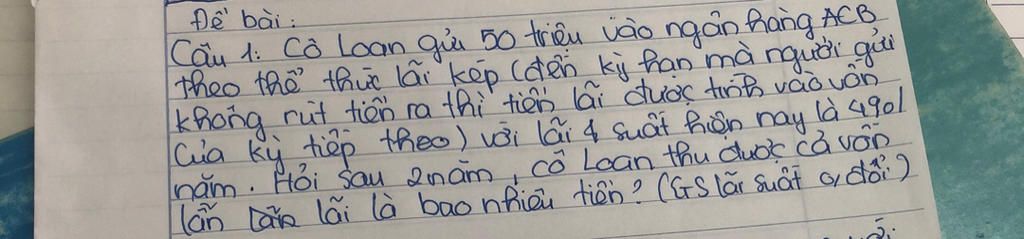 Đề bài:
Câu 1: Cô Loan gửi 50 triệu vào ngân hàng ACB
theo thể thức lãi kép (đến kỳ hạn mà người gửi
không rút tiền ra thì tiền lãi được tính vào vốn
của kỳ tiếp theo) với lãi suất hiện nay là 4%/
năm. Hỏi sau 2 năm, cô Loan thu được cả vốn
lẫn lãi là bao nhiêu tiền? (GS lãi suất o đổi)